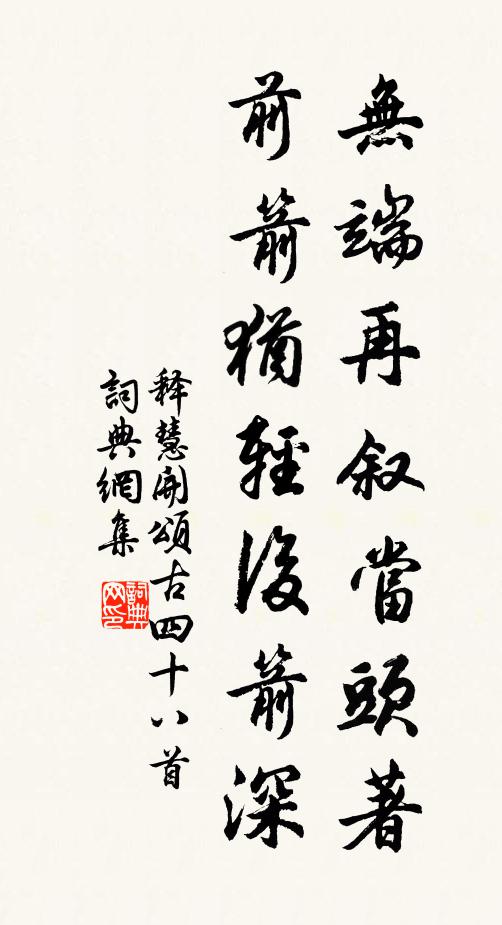 無端再叙當頭著
前箭猶輕後箭深
释慧開頌古四十八首
詞典網集
詞典
网印